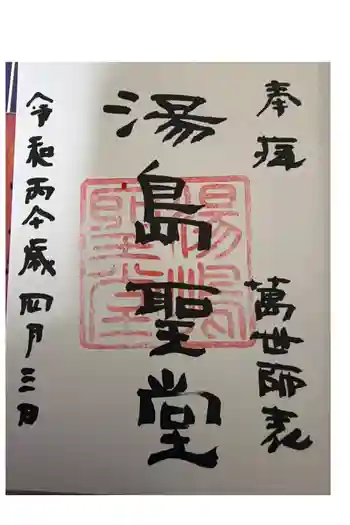 奉拝
萬世師表
湯島聖堂
令和丙午歳四月三日